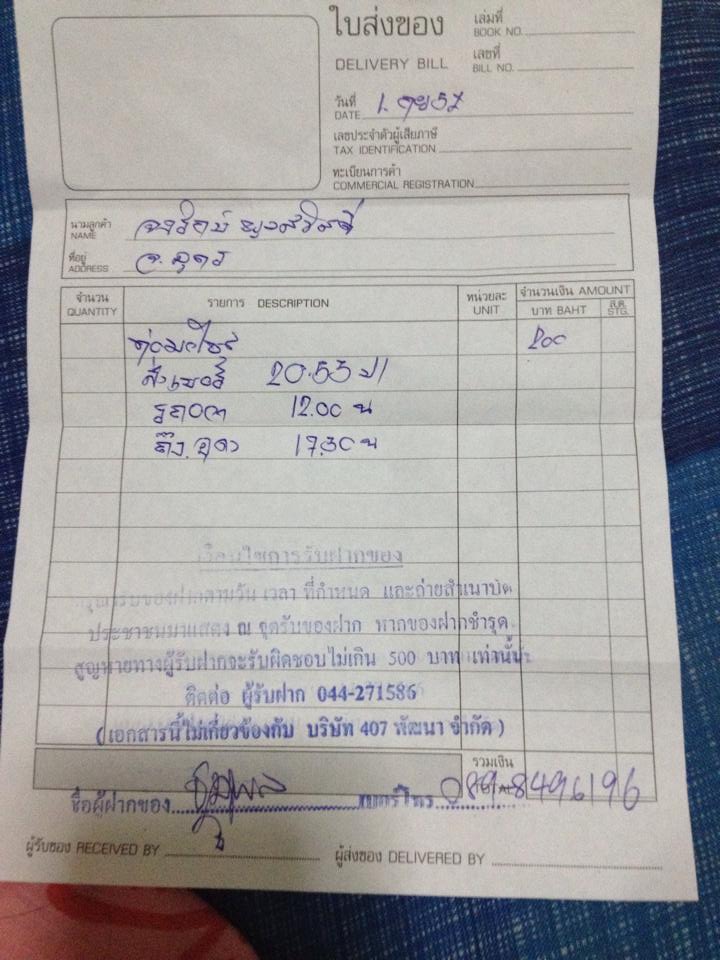 ใบส่งของ
DELIVERY BILL
เล่มที่
BOOK NO.
เลขที่
BILL NO.
วันที่
DATE 1.
เลขประจำตัวผู้เสียภาษี
TAX IDENTIFICATION
ทะเบียนการค้า
COMMERCIAL REGISTRATION
นามลูกค้า
NAME
ที่อยู่
ADDRESS จ. อุดร
จำนวน
QUANTITY
รายการ DESCRIPTION
หน่วยละ
UNIT
จำนวนเงิน AMOUNT
บาท BAHT
ส.ต.
STG.
200
20-53
รถออก 12.00 น
ถึง. อุดร 17.30 น
เงื่อนไขการรับฝากของ
กรุณารับของฝากตามวัน เวลา ที่กำหนด และถ่ายสำเนาบัตร
ประชาชนมาแสดง ณ จุดรับของฝาก หากของฝากชำรุด
สูญหายทางผู้รับฝากจะรับผิดชอบไม่เกิน 500 บาท เท่านั้น
ติดต่อ ผู้รับฝาก 044-271586
(เอกสารนี้ไม่เกี่ยวข้องกับ บริษัท 407 พัฒนา จำกัด)
รวมเงิน
ชื่อผู้ฝากของ เบอร์โทร 089-8496196
ผู้รับของ RECEIVED BY
ผู้ส่งของ DELIVERED BY